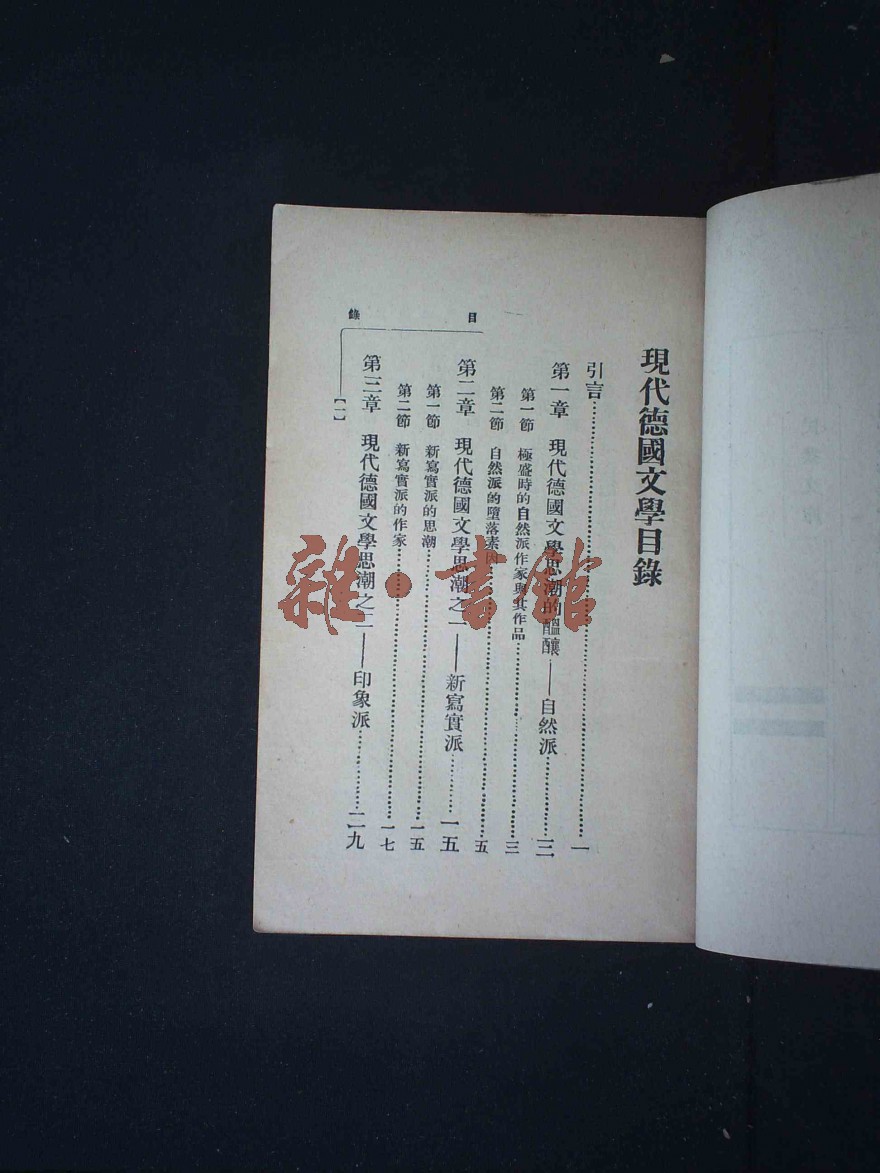 現代德國文學目錄
引言…………一
第一章 現代德國文學思潮的醞釀——自然派…………三
第一節 極盛時的自然派作家與其作品…………三
第二節 自然派的墮落素因…………五
第二章 現代德國文學思潮之一——新寫實派…………一五
第一節 新寫實派的思潮…………一五
第二節 新寫實派的作家…………一七
第三章 現代德國文學思潮之二——印象派…………二九
目錄
【一】
雜·書館